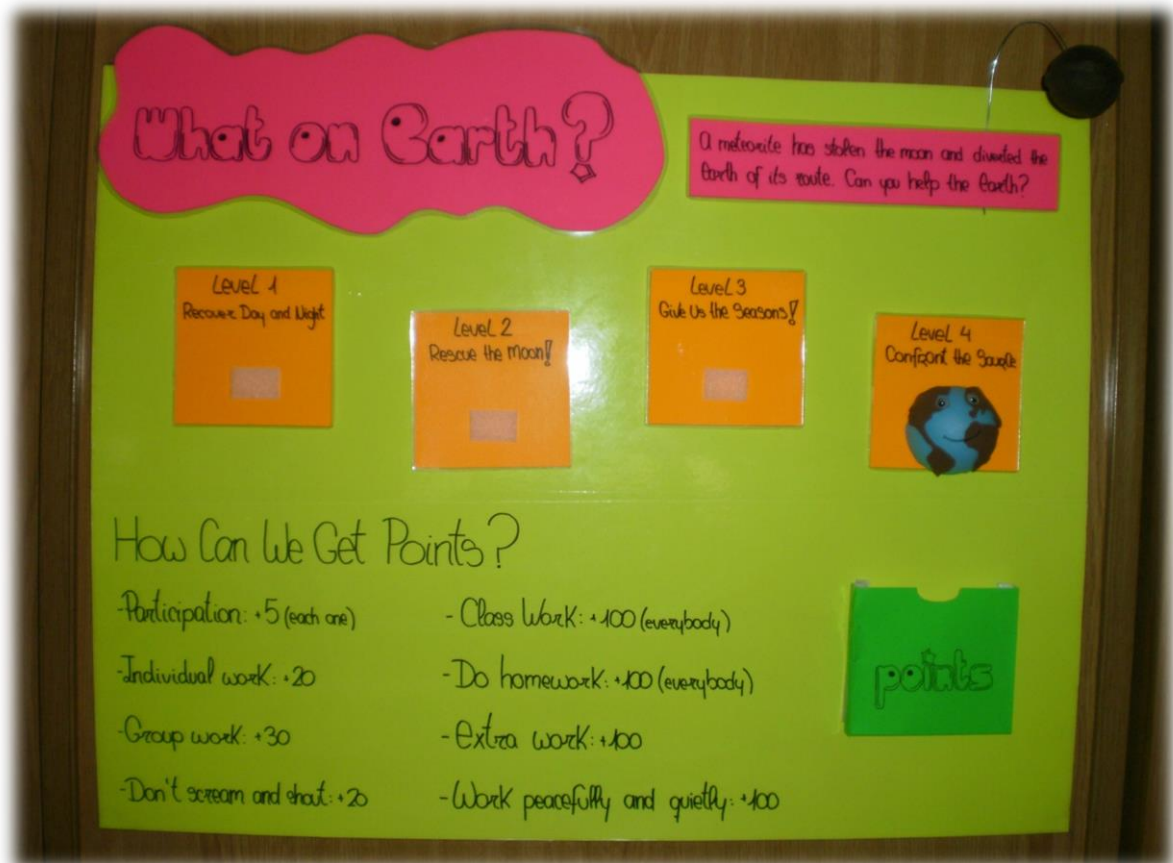 What on Earth?
A meteorite has stolen the moon and diverted the
Earth of its route. Can you help the Earth?
Level 1
Recover Day and Night
Level 2
Rescue the Moon!
Level 3
Give Us the Seasons!
Level 4
Confront the
How Can We Get Points?
-Participation: +5 (each one)
-Individual work: +20
-Group work: +30
-Don't scream and shout: +20
- Class Work: +100 (everybody)
-Do homework: +100 (everybody)
-Extra work: +100
-Work peacefully and quietly: +100
points